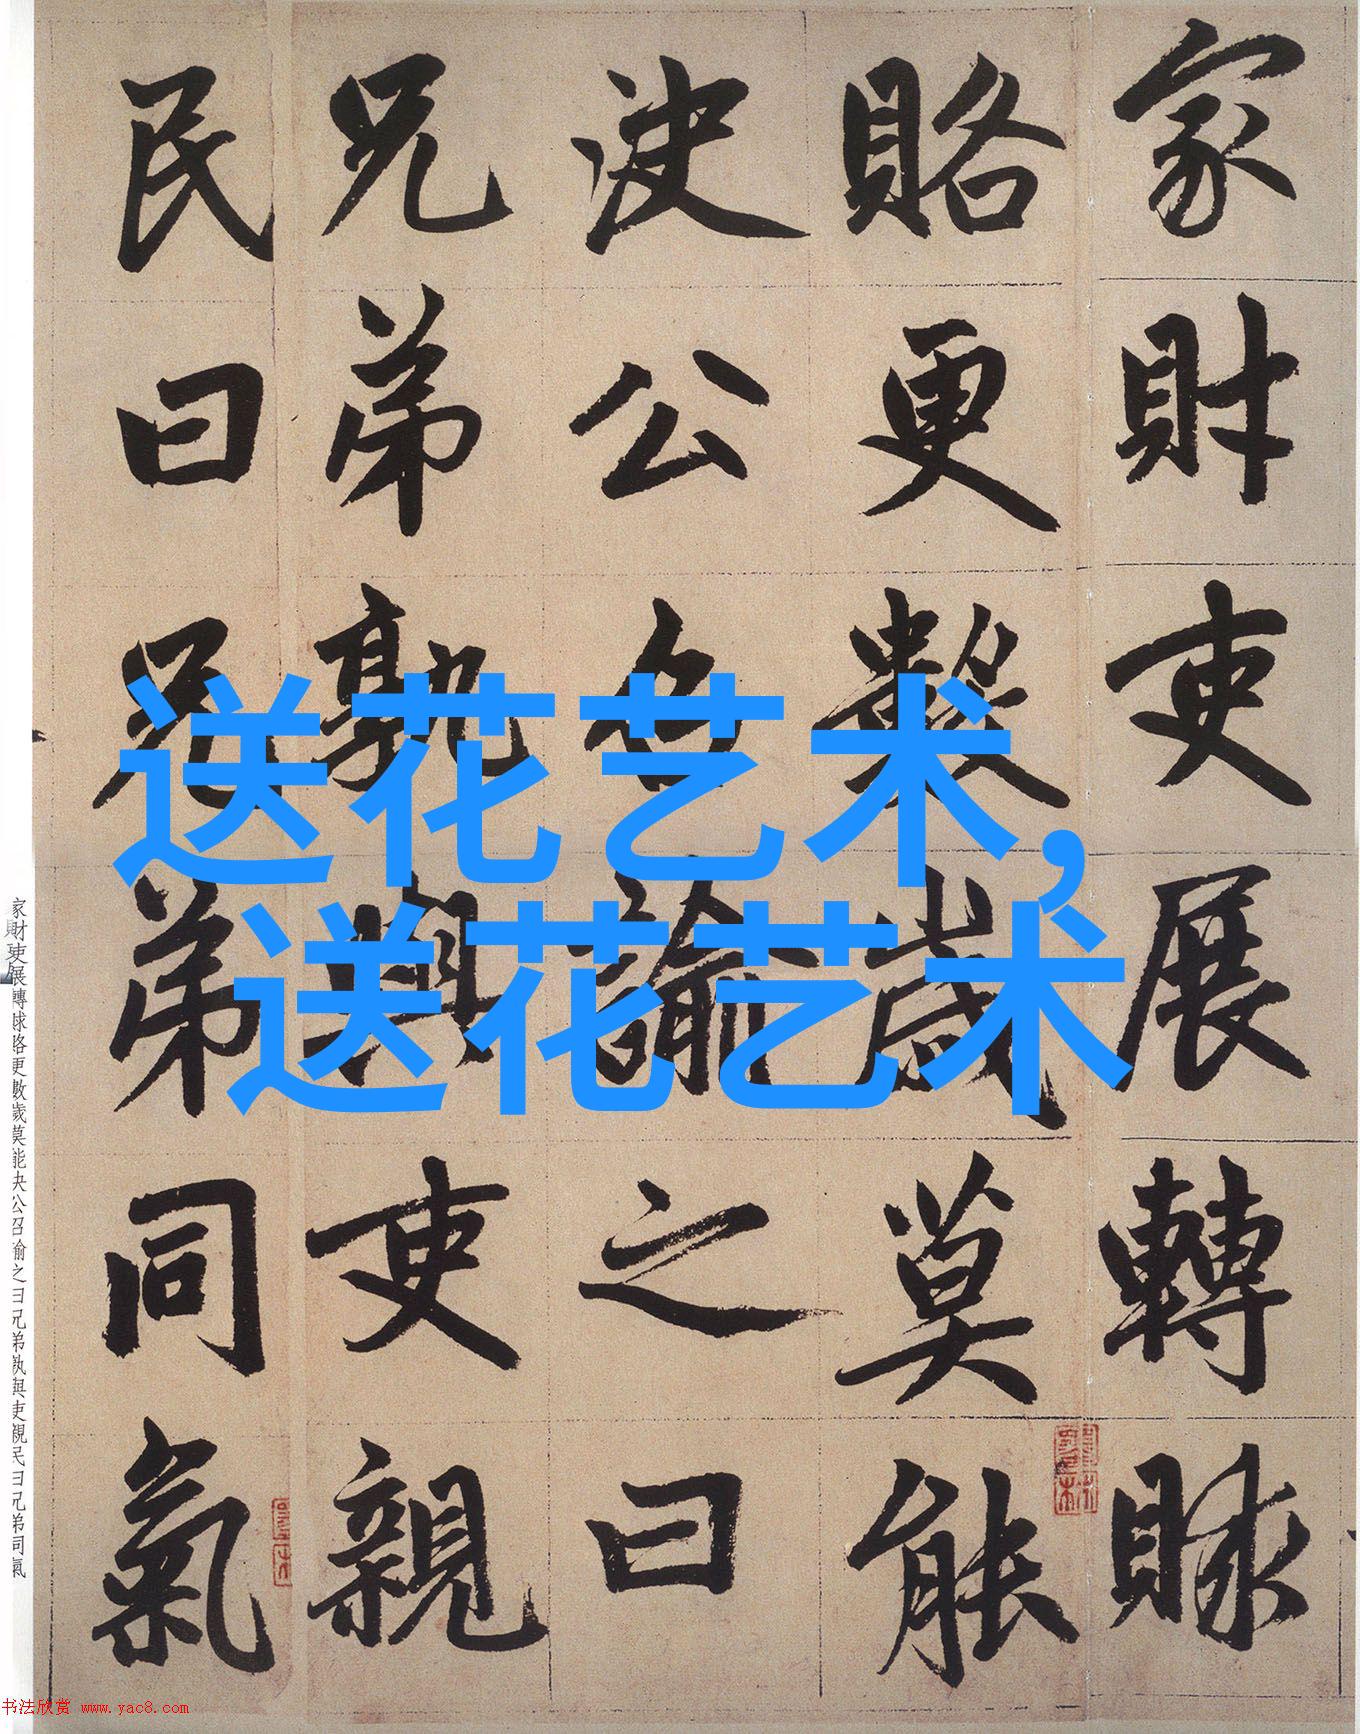 家財吏展轉賕
賂更數歲莫能
決公召諭之曰
兄弟孰與吏親
民曰兄弟同氣
送花艺术,
送花艺术
家財吏展轉賕賂更數歲莫能決公召諭之曰兄弟孰與吏親民曰兄弟同氣
书法欣赏 www.yac8.com